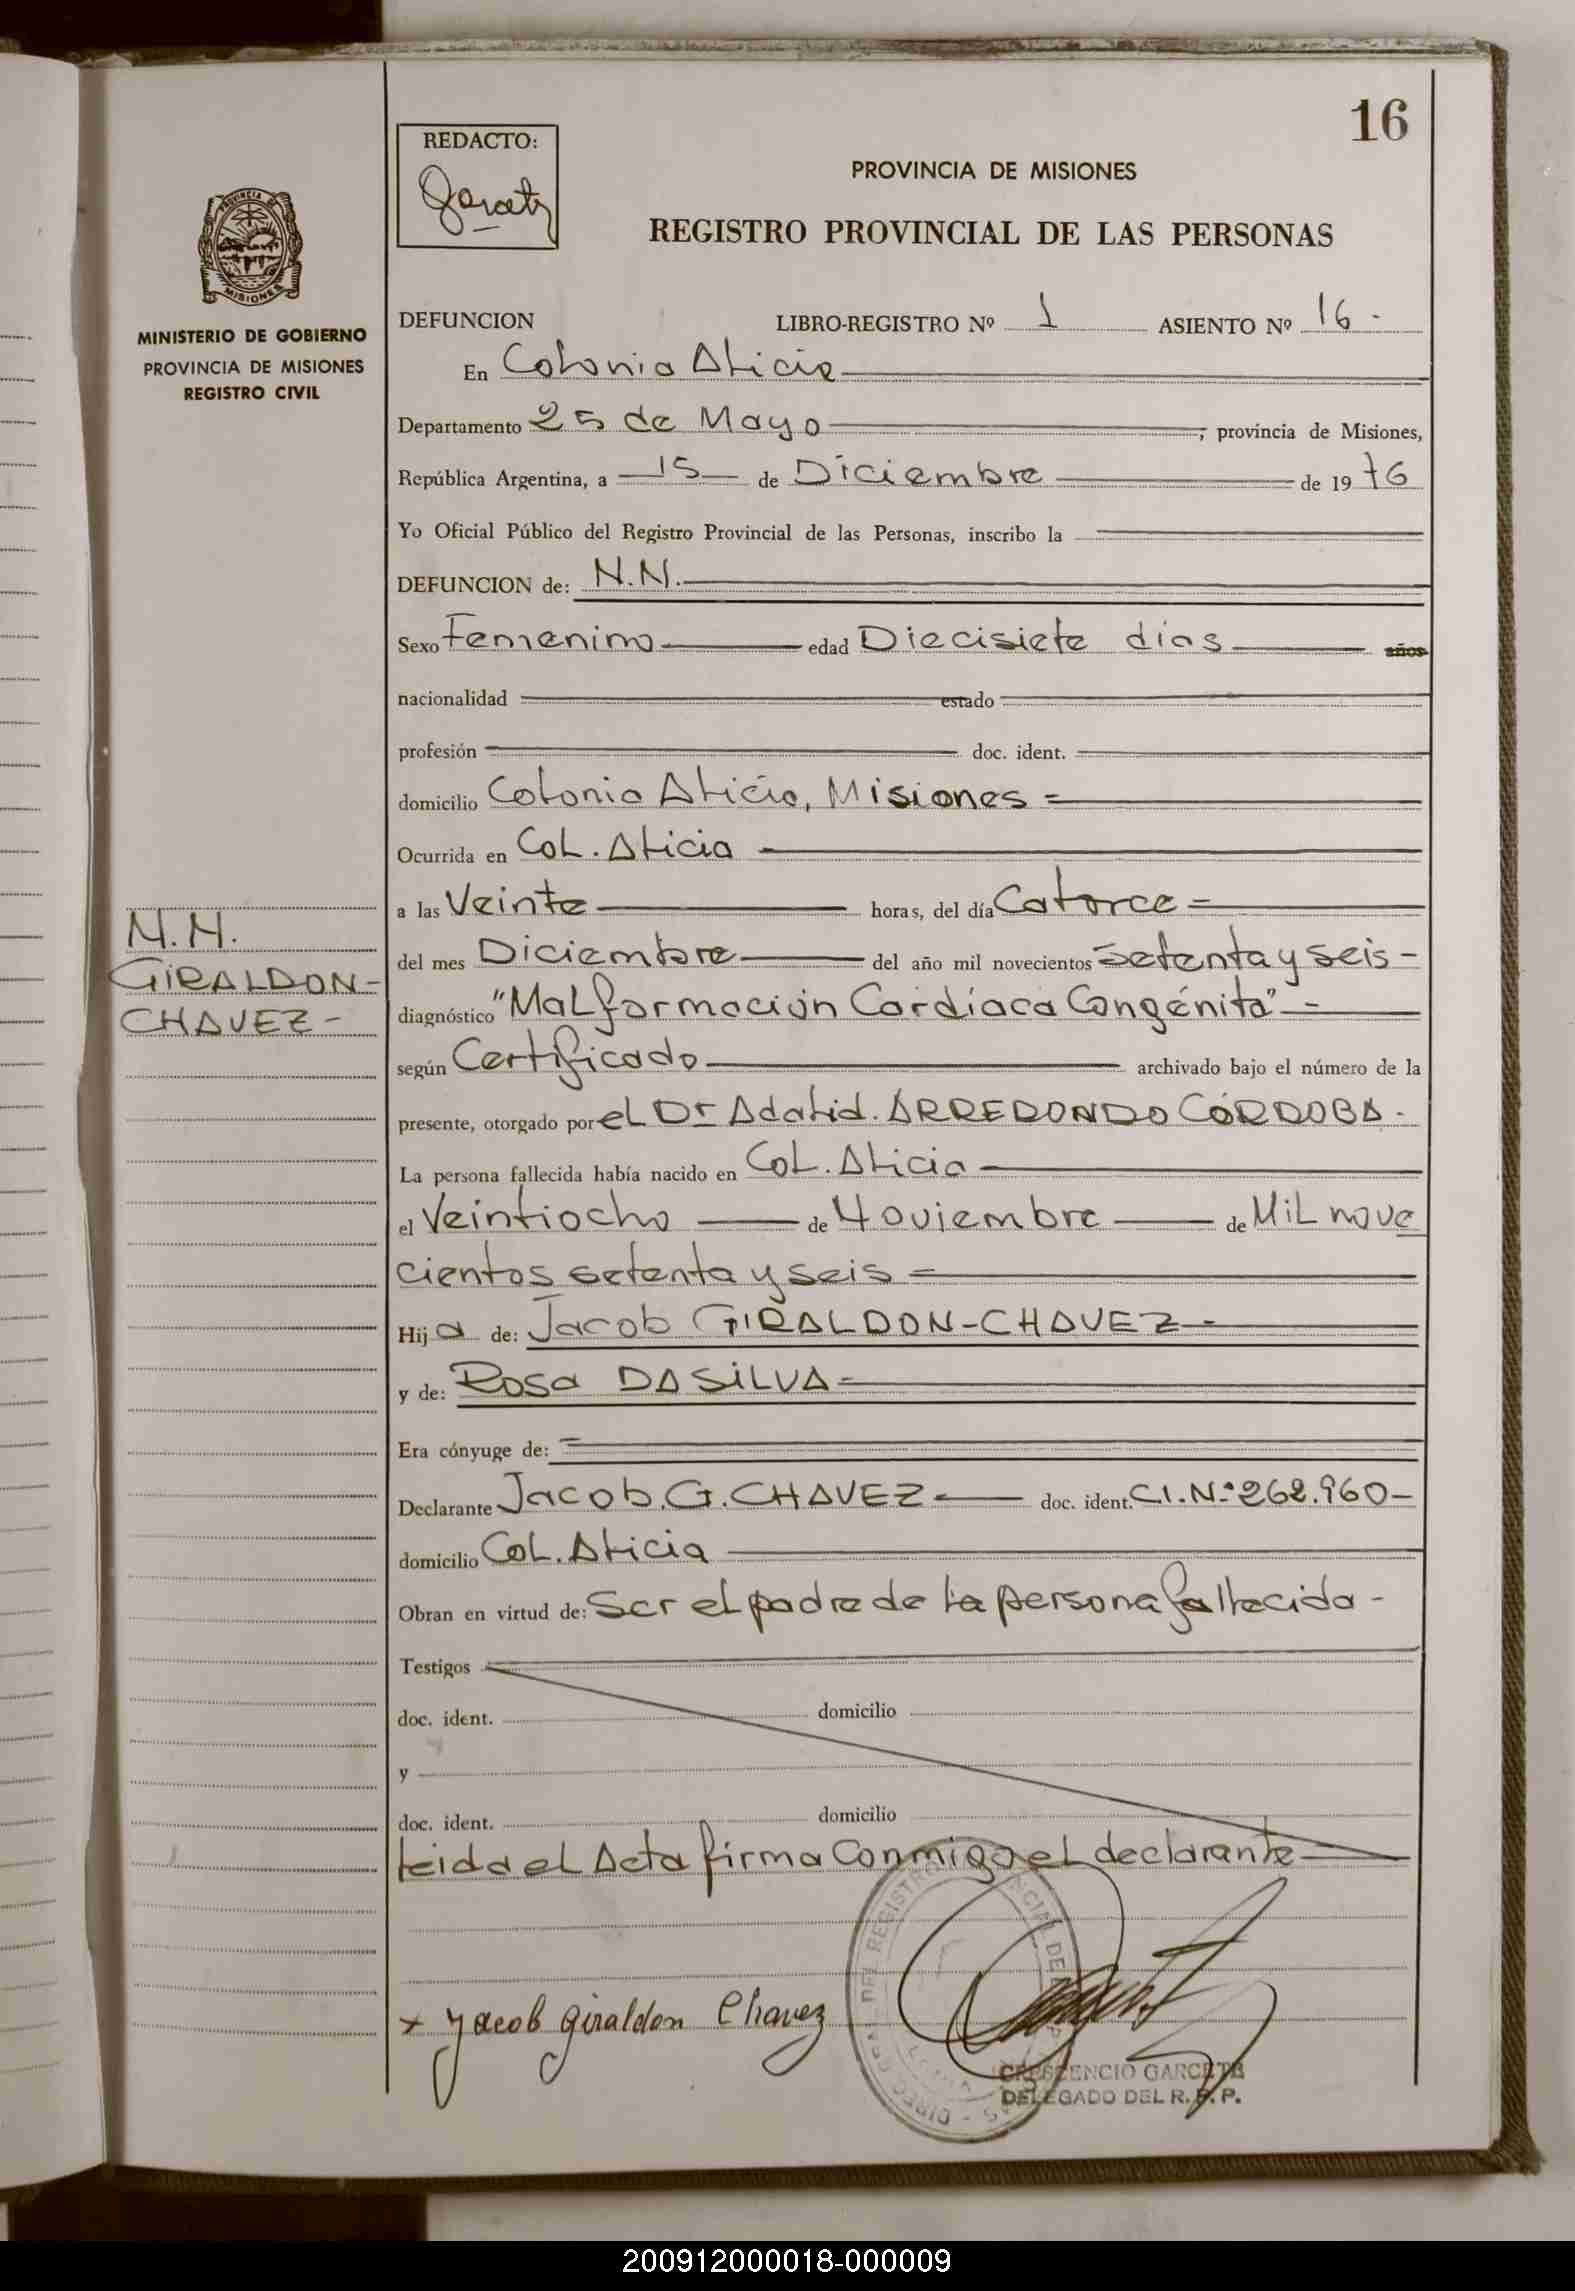 16
REDACTO:
PROVINCIA DE MISIONES
REGISTRO PROVINCIAL DE LAS PERSONAS
PROVINCIA DE
MISIONES
MINISTERIO DE GOBIERNO
PROVINCIA DE MISIONES
REGISTRO CIVIL
DEFUNCION LIBRO-REGISTRO Nº 1 ASIENTO Nº 16.-
En Colonia Alicia
Departamento 25 de Mayo ; provincia de Misiones,
República Argentina, a 15 de Diciembre de 1976
Yo Oficial Público del Registro Provincial de las Personas, inscribo la
DEFUNCION de: N.N.
Sexo Femenino edad Diecisiete días años
nacionalidad estado
profesión doc. ident.
domicilio Colonia Alicia, Misiones =
Ocurrida en Col. Alicia
a las Veinte horas, del día Catorce =
del mes Diciembre del año mil novecientos setenta y seis -
diagnóstico "Malformación Cardíaca Congénita" -
según Certificado archivado bajo el número de la
presente, otorgado por el Dr Adalid. ARREDONDO CÓRDOBA.
La persona fallecida había nacido en Col. Alicia
el Veintiocho de Noviembre de Mil nove
cientos setenta y seis =
Hija de: Jacob GIRALDON-CHAVEZ -
y de: Rosa DA SILVA =
Era cónyuge de:
Declarante Jacob. G. CHAVEZ doc. ident. C.I.Nº 262.960-
domicilio Col. Alicia
Obran en virtud de: Ser el padre de la persona fallecida -
Testigos
doc. ident. domicilio
y
doc. ident. domicilio
leida el Acta firma Conmigo el declarante
x Jacob Giraldon Chavez
CRESCENCIO GARCETE
DELEGADO DEL R. P. P.
N.N.
GIRALDON-
CHAVEZ-
200912000018-000009